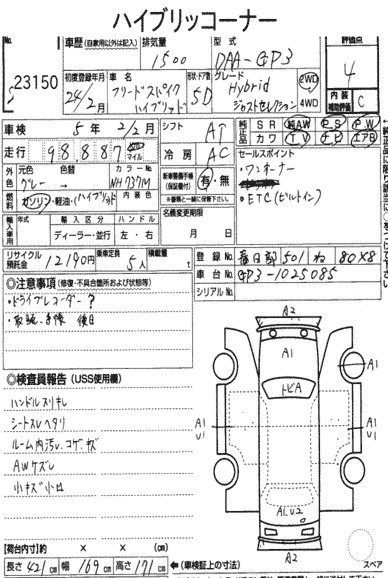 ハイブリッドコーナー
No.
23150
車歴(自家用以外は記入) 排気量 1500 型式 DAA-GP3
初度登録年月 24/2月
車名 フリードスパイク ハイブリッド
形状・ドア数 5D
グレード Hybrid ジャストセレクション
2WD 4WD
評価点 4
内装補助評価 C
車検 5年2/2月
シフト AT
純正品 SR 純AW PS PW
カワ TV ナビ エアB
走行 98,887 マイル
冷房 AC
セールスポイント
・ワンオーナー
・ETC(ビルトイン)
外色 元色 グレー→ 色替
カラーNo NH737M
内装色
新車整備手帳(保証書付) 有・無
※書類と一緒に保管下さい。
燃料 ガソリン・軽油・(ハイブリッド)
名義変更期限 月 日
輸入車用 輸入区分 ハンドル
ディーラー・並行 左・右
リサイクル預託金 12190円
乗車定員 5人
積載量 t
登録No 春日部 501 ね 80X8
車台No GP3-1025085
シリアルNo
◎注意事項(修復・不具合箇所および状態等)
・ドライブレコーダー?
・取説、手帳 後日
◎検査員報告(USS使用欄)
ハンドルスリキレ
シートスレヘタリ
ルーム内汚レ コゲ、キズ
AWケズレ
小キズ小凹
A2
A1
トビA
A1 U1
A1 U1
A1,U2
A2
【荷台内寸】約 × × (cm)
長さ 421cm 幅 169cm 高さ 171cm ←(車検証上の寸法)
スペア